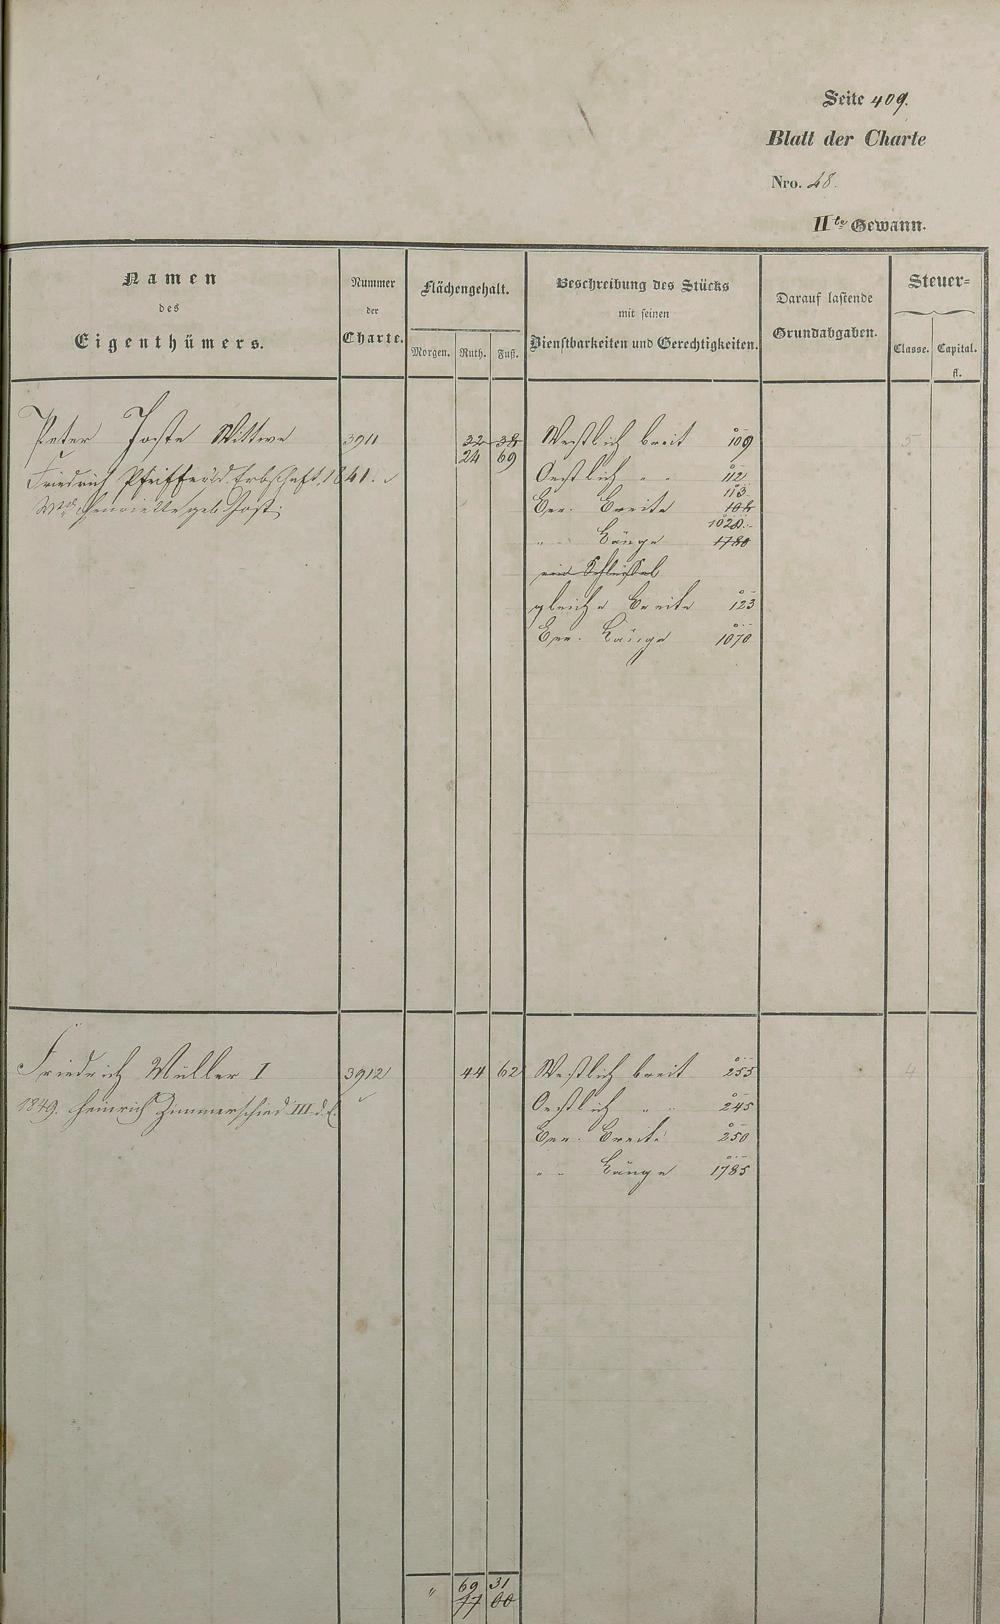 Seite 409.
Blatt der Charte
Nro. 48.
IIte Gewann.
Namen
des
Eigenthümers.
Nummer
der
Charte.
Flächengehalt.
Morgen. Ruth. Fuß.
Beschreibung des Stücks
mit seinen
Dienstbarkeiten und Gerechtigkeiten.
Darauf lastende
Grundabgaben.
Steuer=
Classe. Capital.
fl.
Peter Joste Wittwe 3911 32 38 Westlich breit 109 5
24 69
Friedrich Pfeiffer d. Erbschaft. 1841. Oestlich " " 112
113
Wwe Henrielle geb. Jost. Breite 108
1028
" Länge 1780
ein Schlüssel
gleiche Breite 123
Länge 1070
Friedrich Müller I 3912 44 62 Westlich breit 255 4
1849. Heinrich Zimmerschied III Oestlich " " 245
Breite 250
" Länge 1785
" 69 31
77 00